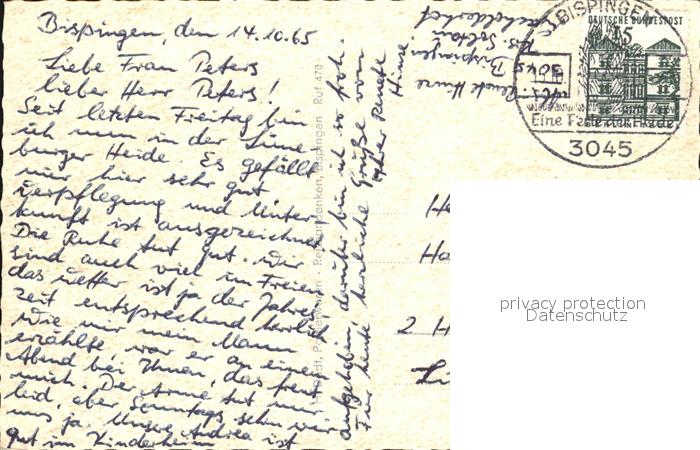 Bispingen, den 14.10.65
Liebe Frau Peters
lieber Herr Peters!
Seit letzten Freitag bin
ich nun in der Lüne
burger Heide. Es gefällt
mir hier sehr gut
Verpflegung und Unter
kunft ist ausgezeichnet.
Die Ruhe tut gut. Wir
sind auch viel im Freien
das Wetter ist ja der Jahres
zeit entsprechend herrlich.
Wie mir mein Mann
erzählte war er an einem
Abend bei Ihnen, das freut
mich. Der Arme tut mir
leid, aber Sonntags sehn wir
uns ja. Unsere Andrea ist
gut im Kinderheim
aufgehoben darüber bin ich so froh.
Für heute herzliche Grüße von
Ihrer Renate
Hinze
Renate Hinze
Bispingen
Krs. Soltau
BISPINGEN
Eine Perle der Heide
3045
DEUTSCHE BUNDESPOST
15
Reiseandenken, Bispingen · Ruf 470
2 H
privacy protection
Datenschutz